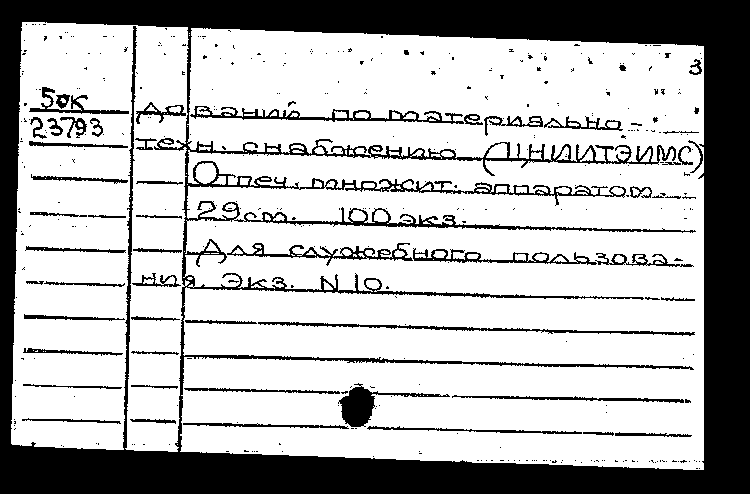 3
50к
23793
дований по материально-
техн. снабжению (ЦНИИТЭИМС)
Отпеч. множит. аппаратом.
29см. 100 экз.
Для служебного пользова-
ния. Экз. N 10.